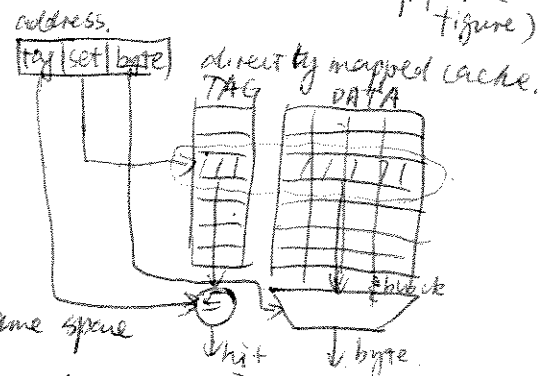 figure)
address.
tag set byte
directly mapped cache.
TAG DATA
=
block
same space
hit byte